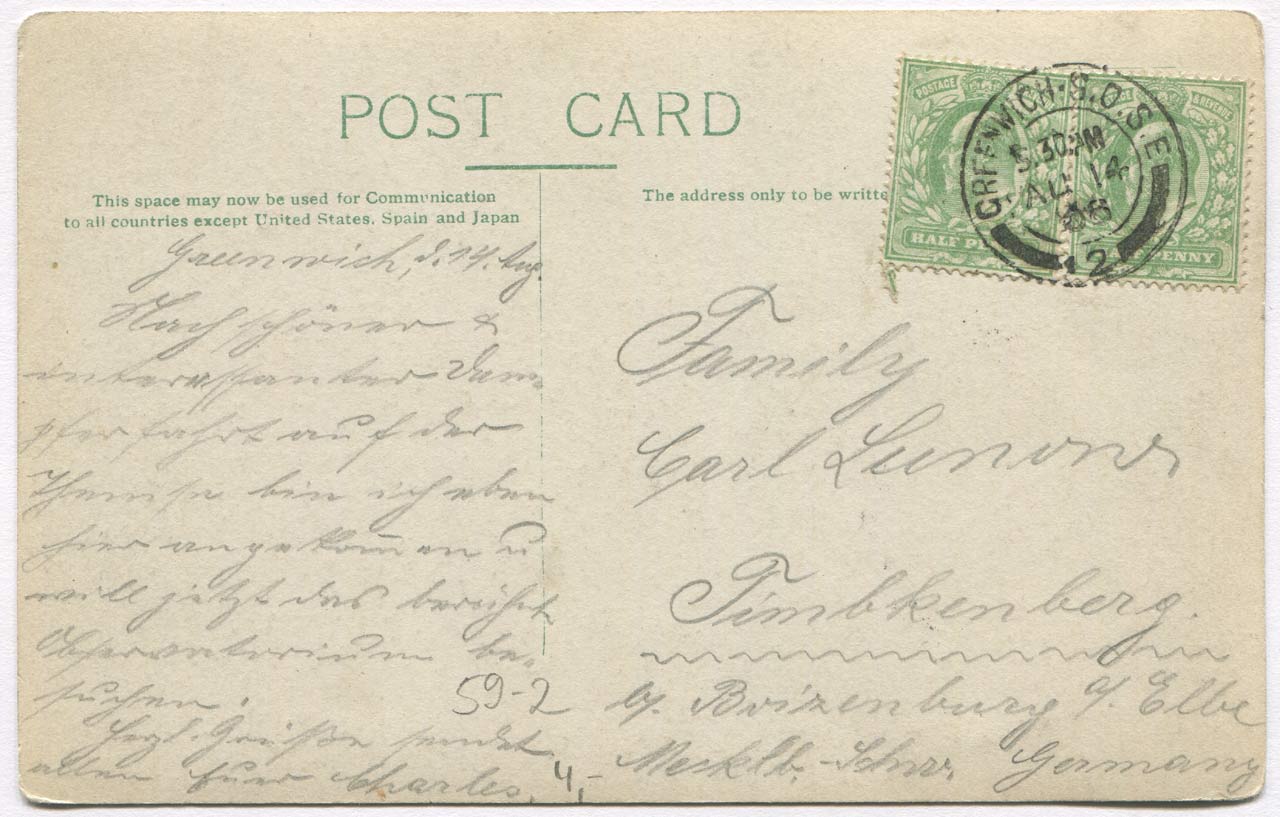 POST CARD
This space may now be used for Communication
to all countries except United States, Spain and Japan
The address only to be writte
POSTAGE
& REVENUE
HALF PE
PENNY
GREENWICH·S.O.S.E
5.30PM
AU 14
06
12
Greenwich, d. 14. Aug.
Nach schöner &
interessanter Dam-
pferfahrt auf der
Themse bin ich eben
hier angekom̅en u
will jetzt das berühmt
Observatorium be-
suchen.
Herzl. Grüße sendet
allen Euer Charles.
59-2
4,-
Family
Carl Lunow
Timbkenberg.
b/. Boizenburg a/ Elbe
Mecklb.-Schw. Germany